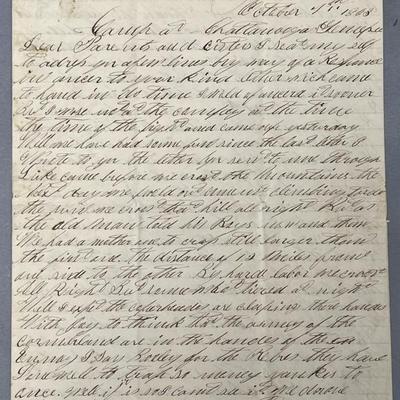 October 1st 1863
Camp at Chattanooga Tenessee
Dear Parents and Sisters I seat my self
to adress you a few lines by way of a Responce
in answer to your kind letter wich came
to hand in du time I would of answerd it sooner
But I was not at the company at the time
the time of the fight and came up yesterday
Well we have had some fun since the last letter I
Wrote to you the letter you sent to me through
Luke came before me crost the Mountains the
next day we
the first we crost that hill all right But
the old man told his Boys now and then
We had a nother one to cross still larger than
the first and the distance of 15 miles from
one side to the other By hard labor we crost
all Right But some what tired at night
Well I expect the coperheads are claping there hands
With joy to think that the army of the
cumberland are in the handes of the
Enemy I say for the Rebs they have
done well to trap so many yankes to
once well if it is so I cant see it We